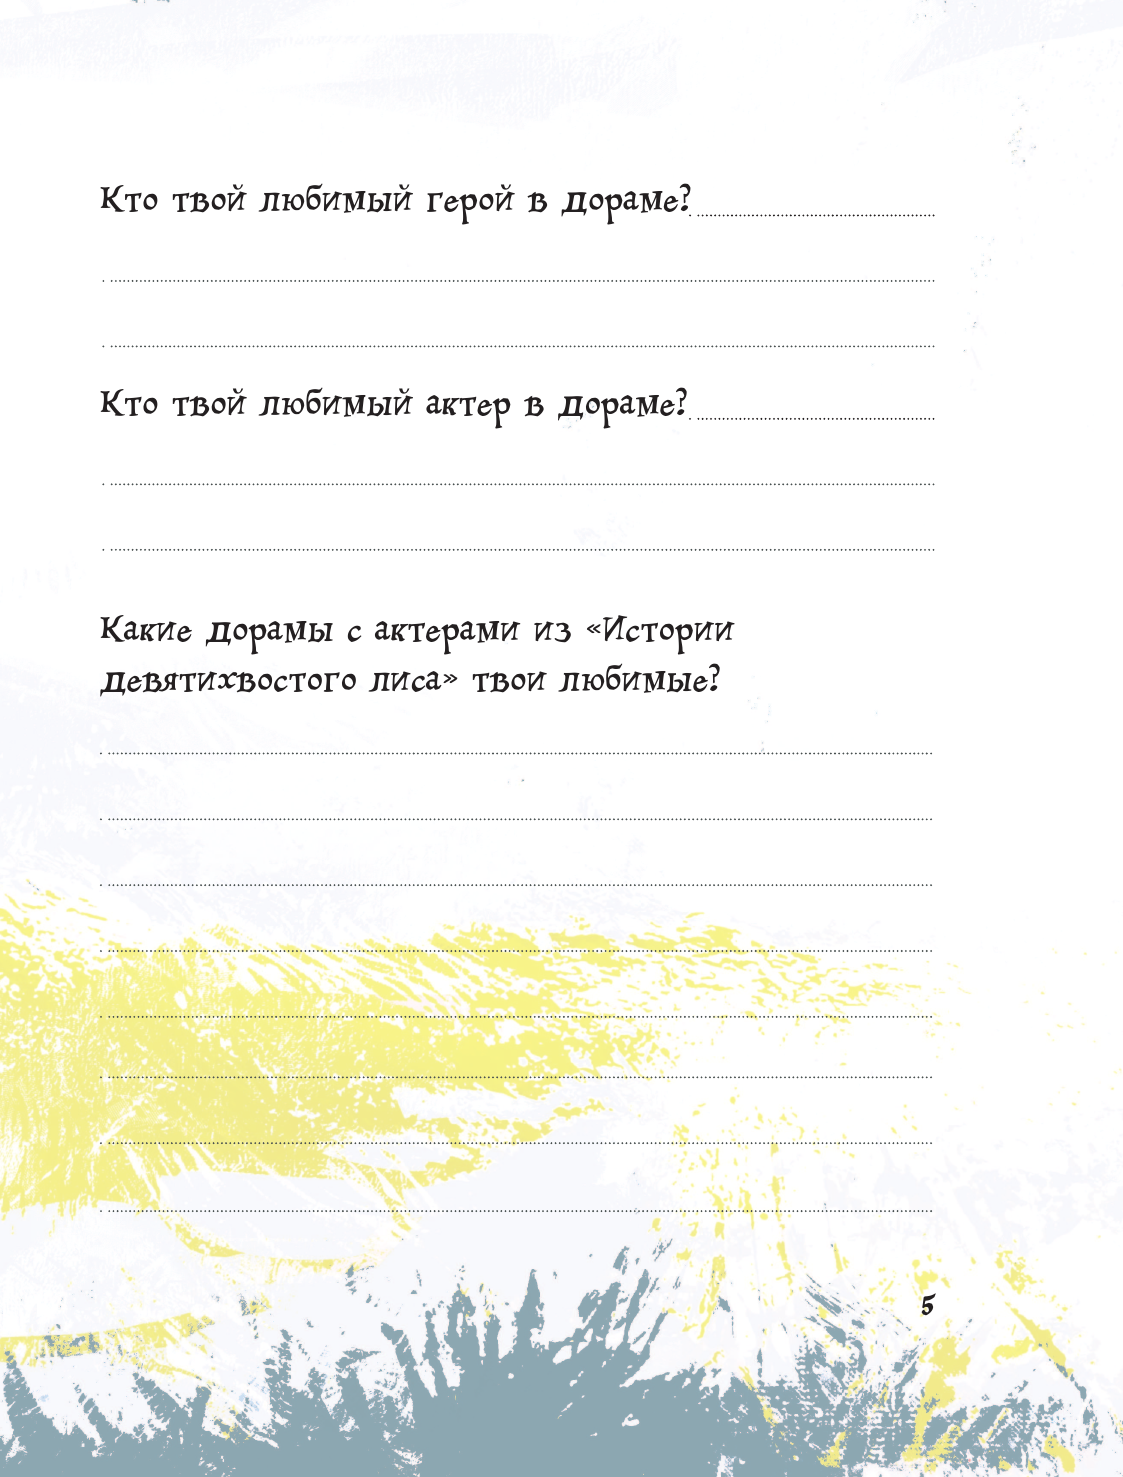 Кто твой любимый герой в дораме?
Кто твой любимый актер в дораме?
Какие дорамы с актерами из «Истории
девятихвостого лиса» твои любимые?
5